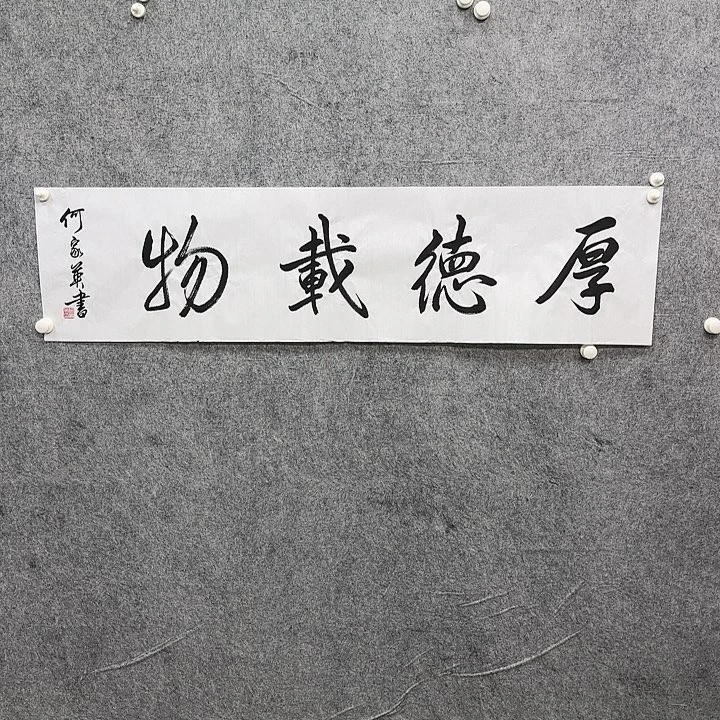 厚德載物
何家英書